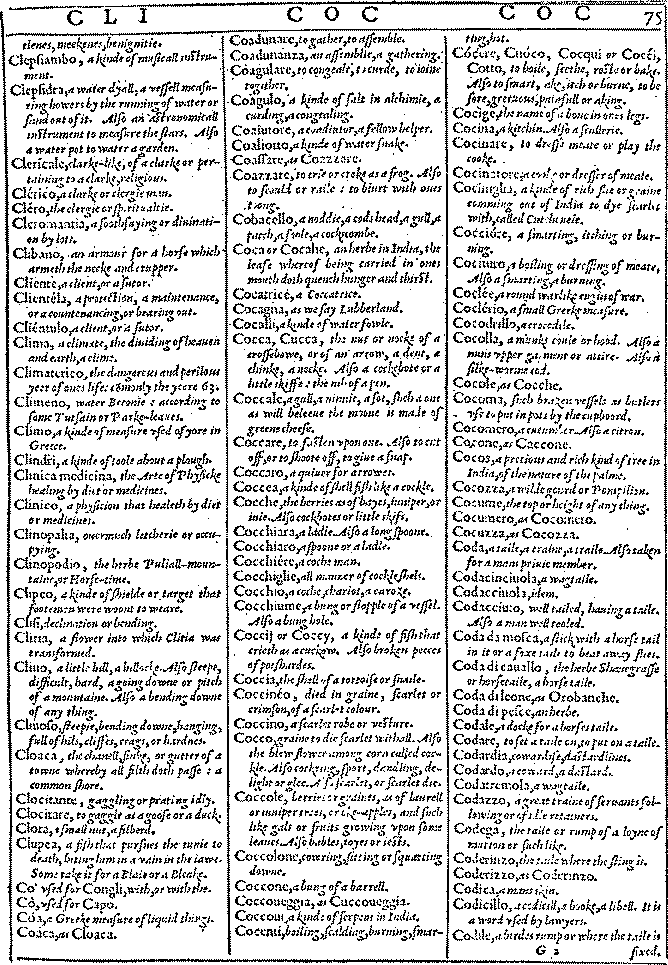 C L I
C O C
C O C
75
tienes, meekenes, benignitie.
Clepsiambo, a kinde of musicall instru-
ment.
Clepsidra, a water dyall, a vessell measu-
ring howers by the running of water or
sand out of it. Also an astronomicall
instrument to measure the stars. Also
a water pot to water a garden.
Clericale, clarke-like, of a clarke or per-
taining to a clarke, religious.
Clérico, a clarke or clergie man.
Cléro, the clergie or
Cleromantia, a soothsaying or divinati-
on by lots.
Clibano, an armour for a horse which
armeth the necke and crupper.
Cliente, a client, or a sutor.
Clientéla, a protection, a maintenance,
or a countenancing, or bearing out.
Cliéntulo, a client, or a sutor.
Clima, a climate, the dividing of heaven
and earth, a clime.
Climaterico, the dangerous and perilous
yeer of ones life: commonly the yeere 63.
Climeno, water Betonie: according to
some Tutsain or Parke-leaues.
Climo, a kinde of measure vsed of yore in
Greece.
Clindri, a kinde of toole about a plough.
Clinica medicina, the Arte of Physicke
healing by diet or medicines.
Clinico, a physicion that healeth by diet
or medicines.
Clinopalia, overmuch letcherie or occu-
pying.
Clinopodio, the herbe Puliall-moun-
taine, or Horse-time.
Clipeo, a kinde of shielde or target that
footemen were woont to weare.
Clisi, declination or bending.
Clitia, a flower into which Clitia was
transformed.
Cliuo, a little hill, a hillocke. Also steepe,
difficult, hard, a going downe or pitch
of a mountaine. Also a bending downe
of any thing.
Cliuoso, steepie, bending downe, hanging,
full of hils, cliffes, crags, or hardnes.
Cloaca, the chanell, sinke, or gutter of a
towne whereby all filth doth passe: a
common shore.
Clocitante, gaggling or prating idly.
Clocitare, to gaggle as a goose or a duck.
Clora, a small nut, a filberd.
Clupea, a fish that pursues the tunie to
death, biting him in a vain in the iawe.
Some take it for a Blaie or a Bleake.
Co' vsed for Congli, with, or with the.
Cò, vsed for Capo.
Cóa, a Greeke measure of liquid things.
Coáca, as Cloaca.
Coadunare, to gather, to assemble.
Coadunanza, an assemblie, a gathering.
Coagulare, to congeale, to curde, to ioine
together.
Coágulo, a kinde of salt in alchimie, a
curding, a congealing.
Coaiutore, a coadiutor, a fellow helper.
Coaliotto, a kinde of water snake.
Coassare, as Coazzare.
Coazzare, to crie or croke as a frog. Also
to scould or raile: to blurt with ones
toong.
Cobacello, a noddie, a cods head, a gull, a
patch, a foole, a cockscombe.
Coca or Cocahe, an herbe in India, the
leafe whereof being carried in ones
mouth doth quench hunger and thirst.
Cocatrice, a Coccatrice.
Cocagna, as we say Lubberland.
Cocalli, a kinde of water fowle.
Cocca, Cucca, the nut or nocke of a
crossebowe, or of an arrow, a dent, a
chinke, a nocke. Also a cockbote or a
little skiffe: the nib of a pen.
Coccale, a gull, a ninnie, a sot, such a one
as will beleeue the moone is made of
greene cheese.
Coccare, to fasten vpon one. Also to cut
off, or to shoote off, to giue a snap.
Coccaro, a quiuer for arrowes.
Coccea, a kinde of shell fish like a cockle.
Cocche, the berries as of bayes, iuniper, or
iuie. Also cockbotes or little skifs.
Cocchiara, a ladle. Also a long spoone.
Cocchiaro, a spoone or a ladle.
Cocchiére, a coche man.
Cocchiglie, all manner of cockleshels.
Cocchio, a coche, chariot, a caroze.
Cocchiume, a bung or stopple of a vessel.
Also a bung hole.
Coccij or Coccy, a kinde of fish that
crieth as a cuckow. Also broken peeces
of potshardes.
Coccia, the shell of a tortoise or snaile.
Coccinéo, died in graine, scarlet or
crimson, of a scarlet colour.
Coccino, a scarlet robe or vesture.
Cocco, graine to die scarlet withall. Also
the blew flower among corn called coc-
kle. Also cocking, sport, dandling, de-
light or glee. Also scarlet, or scarlet die.
Coccole, berries or graines, as of laurell
or iuniper trees, or oke-apples, and such
like gals or fruits growing vpon some
leaues. Also bables, toyes or iests.
Coccolone, cowring, sitting or squatting
downe.
Coccone, a bung of a barrell.
Coccoueggia, as Cuccoueggia.
Coccoui, a kinde of serpent in India.
Cocenti, boiling, scalding, burning, smar-
ting, hot.
Cócere, Cuóco, Cocqui or Cocei,
Cotto, to boile, seethe, roste or bake.
Also to smart, ake, itch or burne, to be
sore, greeuous, painfull or aking.
Cocige, the name of a bone in ones legs.
Cocina, a kitchin. Also a scullerie.
Cocinare, to dresse meate or play the
cooke.
Cocinatore, a cooke or dresser of meate.
Cociniglia, a kinde of rich fine graine
comming out of India to dye scarlet
with, called Cutcheneale.
Cocióre, a smarting, itching or bur-
ning.
Cocitura, a boiling or dressing of meate,
Also a smarting, a burning.
Coclée, a round warlike engin of war.
Coclério, a small Greeke measure.
Cocodrillo, a crocodile.
Cocolla, a munks coule or hood. Also a
nuns vpper garment or attire. Also a
silke-worme cod.
Cocole, as Cocche.
Cocoma, such brazen vessels as butlers
vse to put in pots by the cupboord.
Cocomero, a cucumber. Also a citron.
Cocone, as Caccone.
Cocos, a precious and rich kind of tree in
India, of the nature of the palme.
Cocozza, a wilde gourd or Pompilion.
Cocume, the top or height of any thing.
Cocumero, as Cocomero.
Cocuzza, as Cocozza.
Coda, a taile, a traine, a traile. Also taken
for a mans priuie member.
Codacinciuola, a wagtaile.
Codacciuola, idem.
Codacciuto, well tailed, hauing a taile.
Also a man well tooled.
Coda di mosca, a stick with a horse tail
in it or a foxe taile to beat away flies.
Coda di cauallo, the herbe Shauegrasse
or horsetaile, a horse taile.
Coda di leone, as Orobanche.
Coda di pesce, an herbe.
Codale, a docke for a horses taile.
Codare, to set a taile on, to put on a taile.
Codardia, cowardise, dastardlines.
Codardo, a coward, a dastard.
Codatremola, a wagtaile.
Codazzo, a great traine of seruants fol-
lowing or of idle retainers.
Codega, the taile or rump of a loyne of
mutton or such like.
Coderinzo, the taile where the sting is.
Coderizzo, as Coderinzo.
Codica, a mans skin.
Codicillo, a codicill, a booke, a libell. It is
a word vsed by lawyers.
Codile, a birdes rump or where the taile is
G 2
fixed.